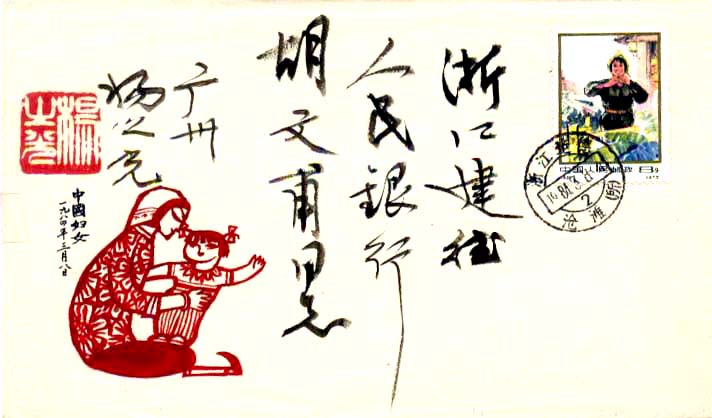 浙江建德
人民银行
胡文甫同志
广州
杨之光
楊之光
中國妇女
一九八四年三月八日
中国人民邮政 8分
浙江建德
2